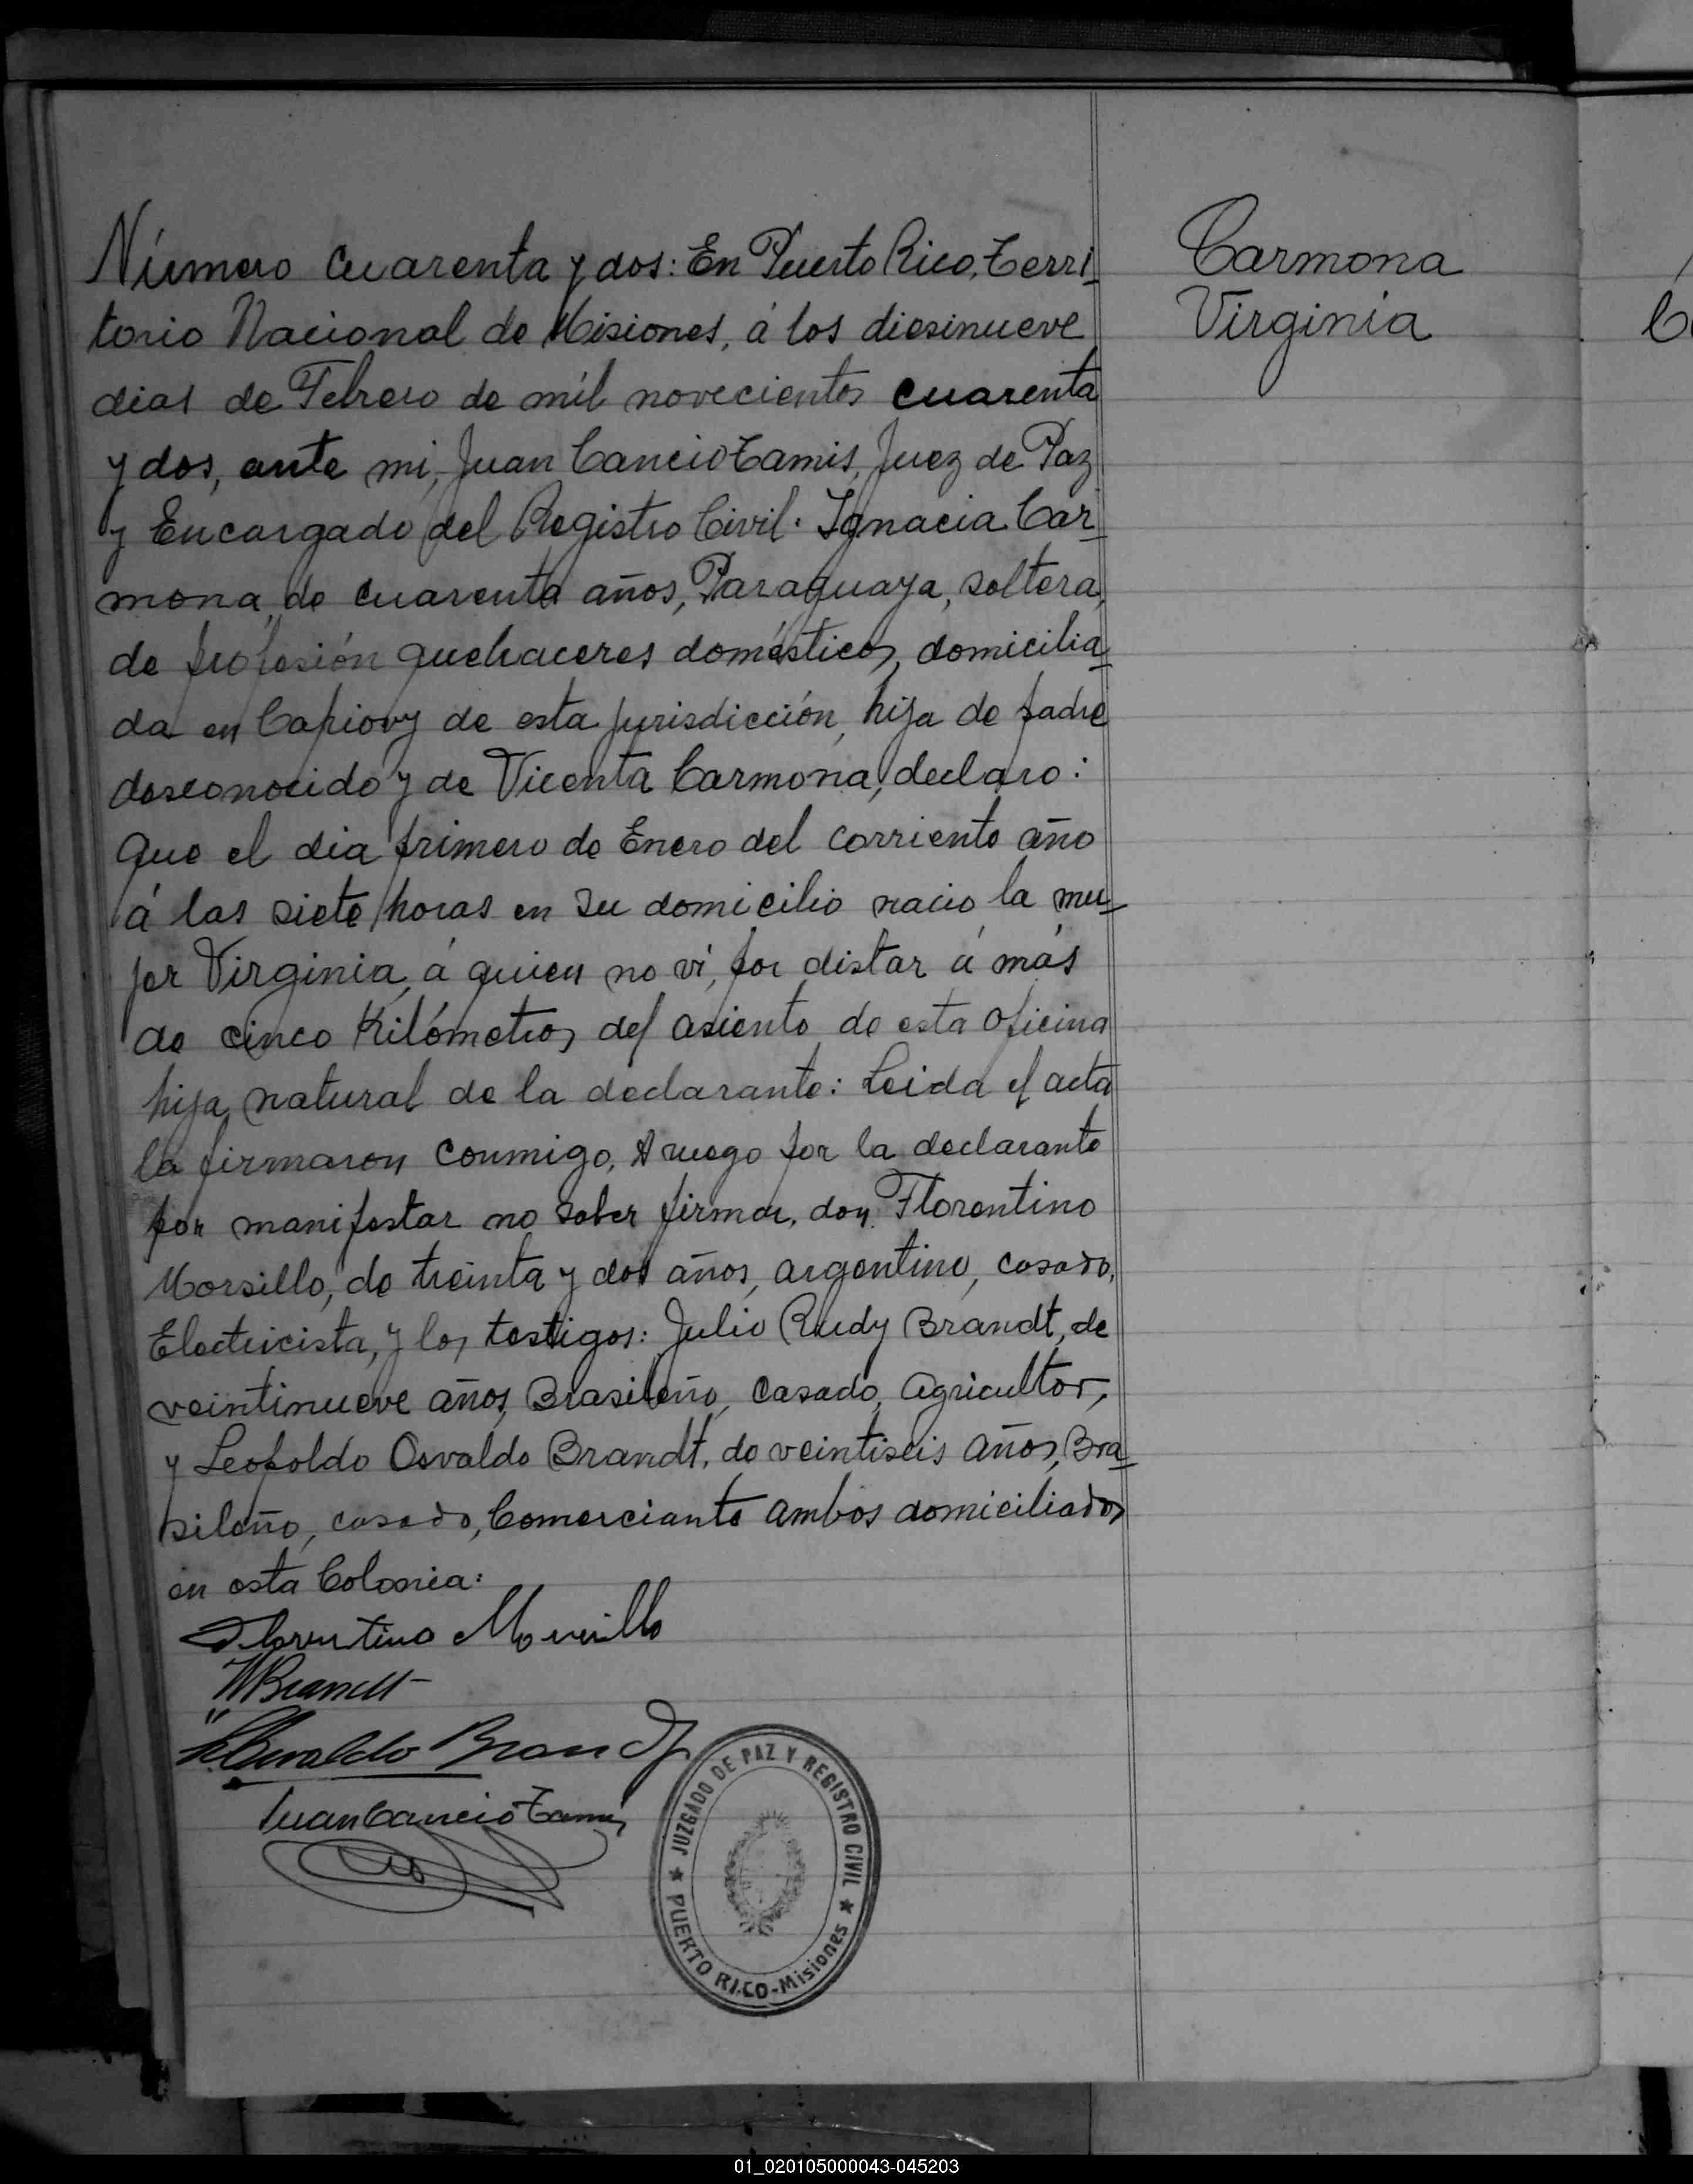 Número cuarenta y dos: En Puerto Rico, Terri-
torio Nacional de Misiones, á los diesinueve
dias de Febrero de mil novecientos cuarenta
y dos, ante mi, Juan Cancio Tamis, Juez de Paz
y Encargado del Registro Civil. Ignacia Car-
mona, de cuarenta años, Paraguaya, soltera,
de profesión quehaceres domésticos, domicilia-
da en Capiovy de esta jurisdicción, hija de padre
desconocido y de Vicenta Carmona, declaro:
Que el dia primero de Enero del corriente año
á las siete horas en su domicilio nacio la mu-
jer Virginia, á quien no vi, por distar á más
de cinco Kilómetros del asiento de esta oficina
hija natural de la declarante: Leida el acta
la firmaron conmigo, A ruego por la declarante
por manifestar no saber firmar, don Florentino
Morsillo, de treinta y dos años, argentino, casado,
Electricista, y los testigos: Julio Rudy Brandt, de
veintinueve años, Brasileño, casado, agricultor,
y Leopoldo Osvaldo Brandt, de veintiseis años, Bra-
sileño, casado, Comerciante ambos domiciliados
en esta Colonia:
Florentino Morsillo
Brandt
L. Osvaldo Brandt
Juan Cancio Tamis
JUZGADO DE PAZ Y REGISTRO CIVIL
PUERTO RICO-Misiones
Carmona
Virginia
01_020105000043-045203